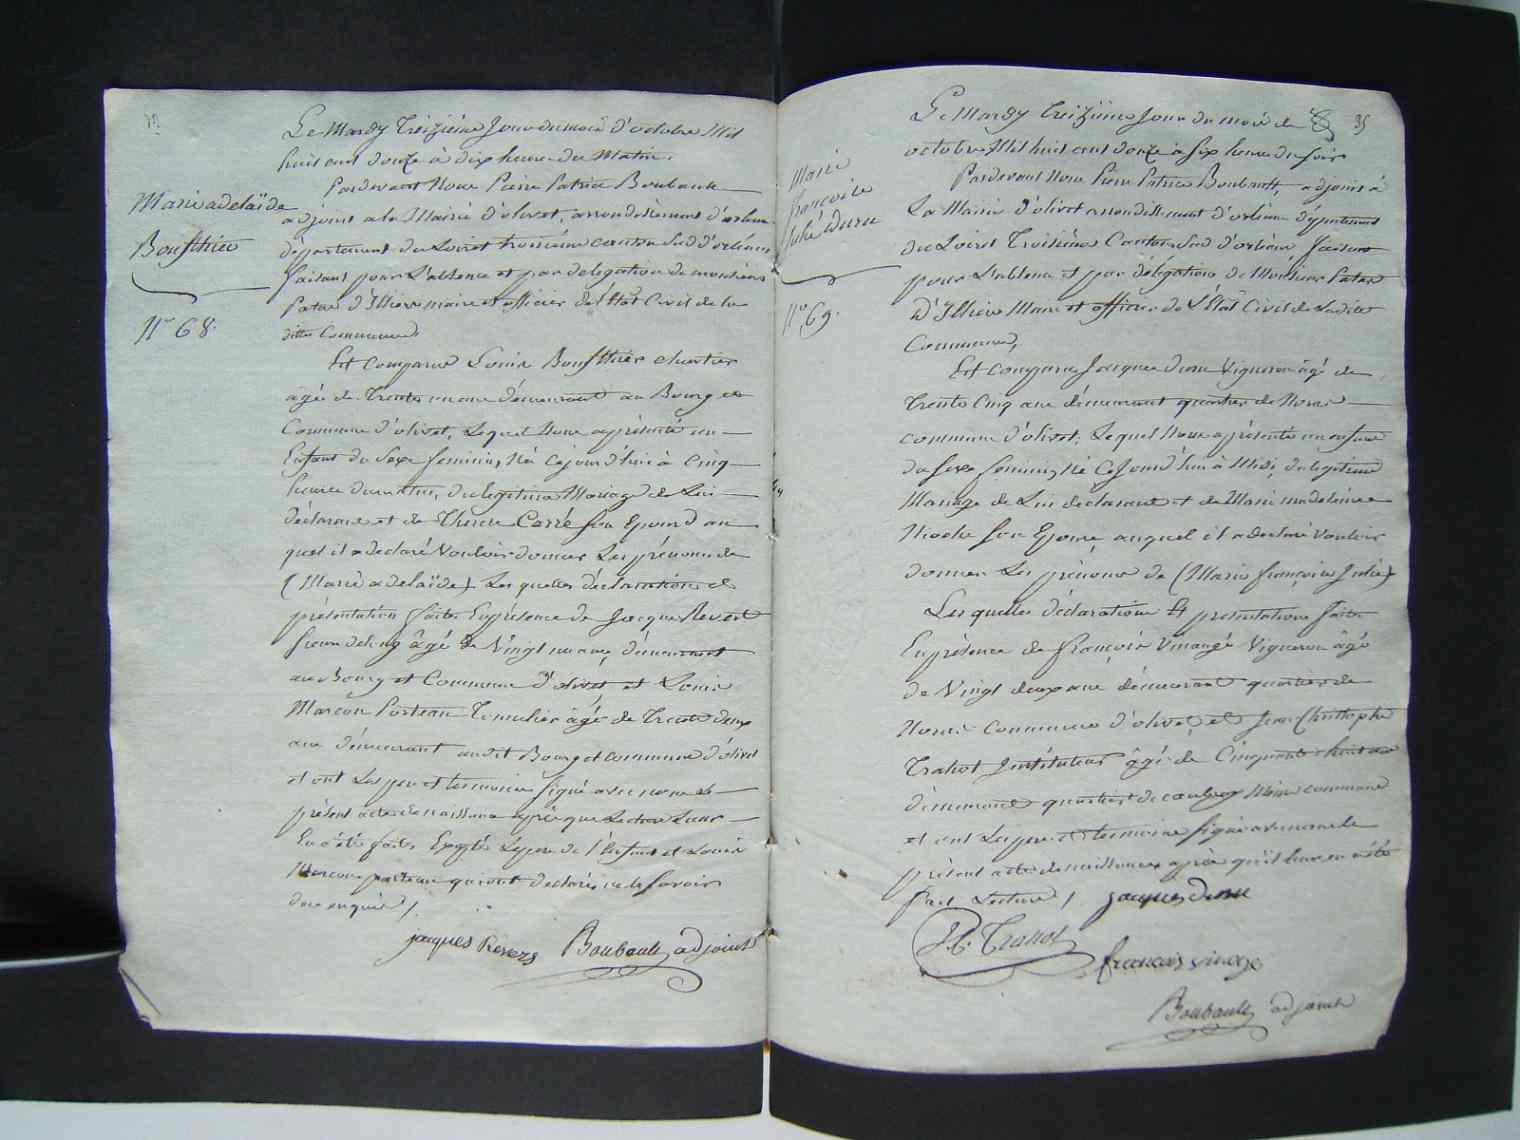 Le Mardy Treizième Jour du mois d'octobre Mil
huit cent douze à dix heures du Matin.
Pardevant Nous Pierre Patrice Boubault
adjoint a la Mairie d'olivet, arrondissement d'orleans
département du Loiret troisième canton Sud d'orléans
faisant pour L'absence et par delegation de monsieur
Patas D'Illiers maire et officier de l'état Civil de la
ditte Commune
Marie adelaïde
Bousthier
N° 68.
Est comparu Louis Bousthier charretier
âgé de Trente un ans démeurant au Bourg et
Commune d'olivet, Lequel Nous a présenté un
Enfant du Sexe feminin, Né Cejourd'hui à Cinq
heures du matin, du legitime Mariage de Lui
déclarant et de Therese Carré son Epouse au
quel il a declaré Vouloir donner Les prénoms de
(Marie adelaïde) Les quelles déclaration et
présentation faites En présence de Jacques Revert
âgé de Vingt neuf ans, démeurant
au Bourg et Commune d'olivet et Louis
Marcou Porteau Tonnelier âgé de Trente deux
ans démeurant audit Bourg et commune d'olivet
et ont Les pere et temoins signé avec nous Le
présent acte de naissance après que Lecture Leur
En a été faite Excepté Le pere de l'Enfant et Louis
Marcou porteau qui ont declaré ne le savoir
de ce enquis /.
jacques Revers Boubault adjoint
35
Le Mardy Treizième Jour du mois de
octobre Mil huit cent douze à six heures du soir
Pardevant Nous Pierre Patrice Boubault, adjoint à
La Mairie d'olivet arrondissement d'orléans département
du Loiret Troisième Canton Sud d'orléans faisant
pour L'absence et par délégation de Monsieur Patas
D'Illiers Maire et officier de L'État Civil de Laditte
Commune,
Marie
françoise
Julie Duru
N° 69.
Est comparu Jacques Duru Vigneron âgé de
Trente Cinq ans démeurant quartier de Noras
commune d'olivet, Lequel Nous a présenté un enfant
du sexe feminin, Né Cejourd'hui à Midi, du legitime
Mariage de Lui declarant et de Marie madeleine
son Epouse, auquel il a declaré Vouloir
donner Les prénoms de (Marie françoise Julie)
Lesquelles déclaration Et présentation faites
En présence de françois Vinauge Vigneron âgé
de Vingt deux ans démeurant quartier de
Noras Commune d'olivet, et Jean Christophe
Trahot Instituteur âgé de Cinquante huit ans
démeurant quartier de Même commune
et ont Les pere et temoins signé avec nous le
présent acte de naissance après qu'il leur en a été
fait Lecture /. jacques Duru
Trahot
francois vinage
Boubault adjoint